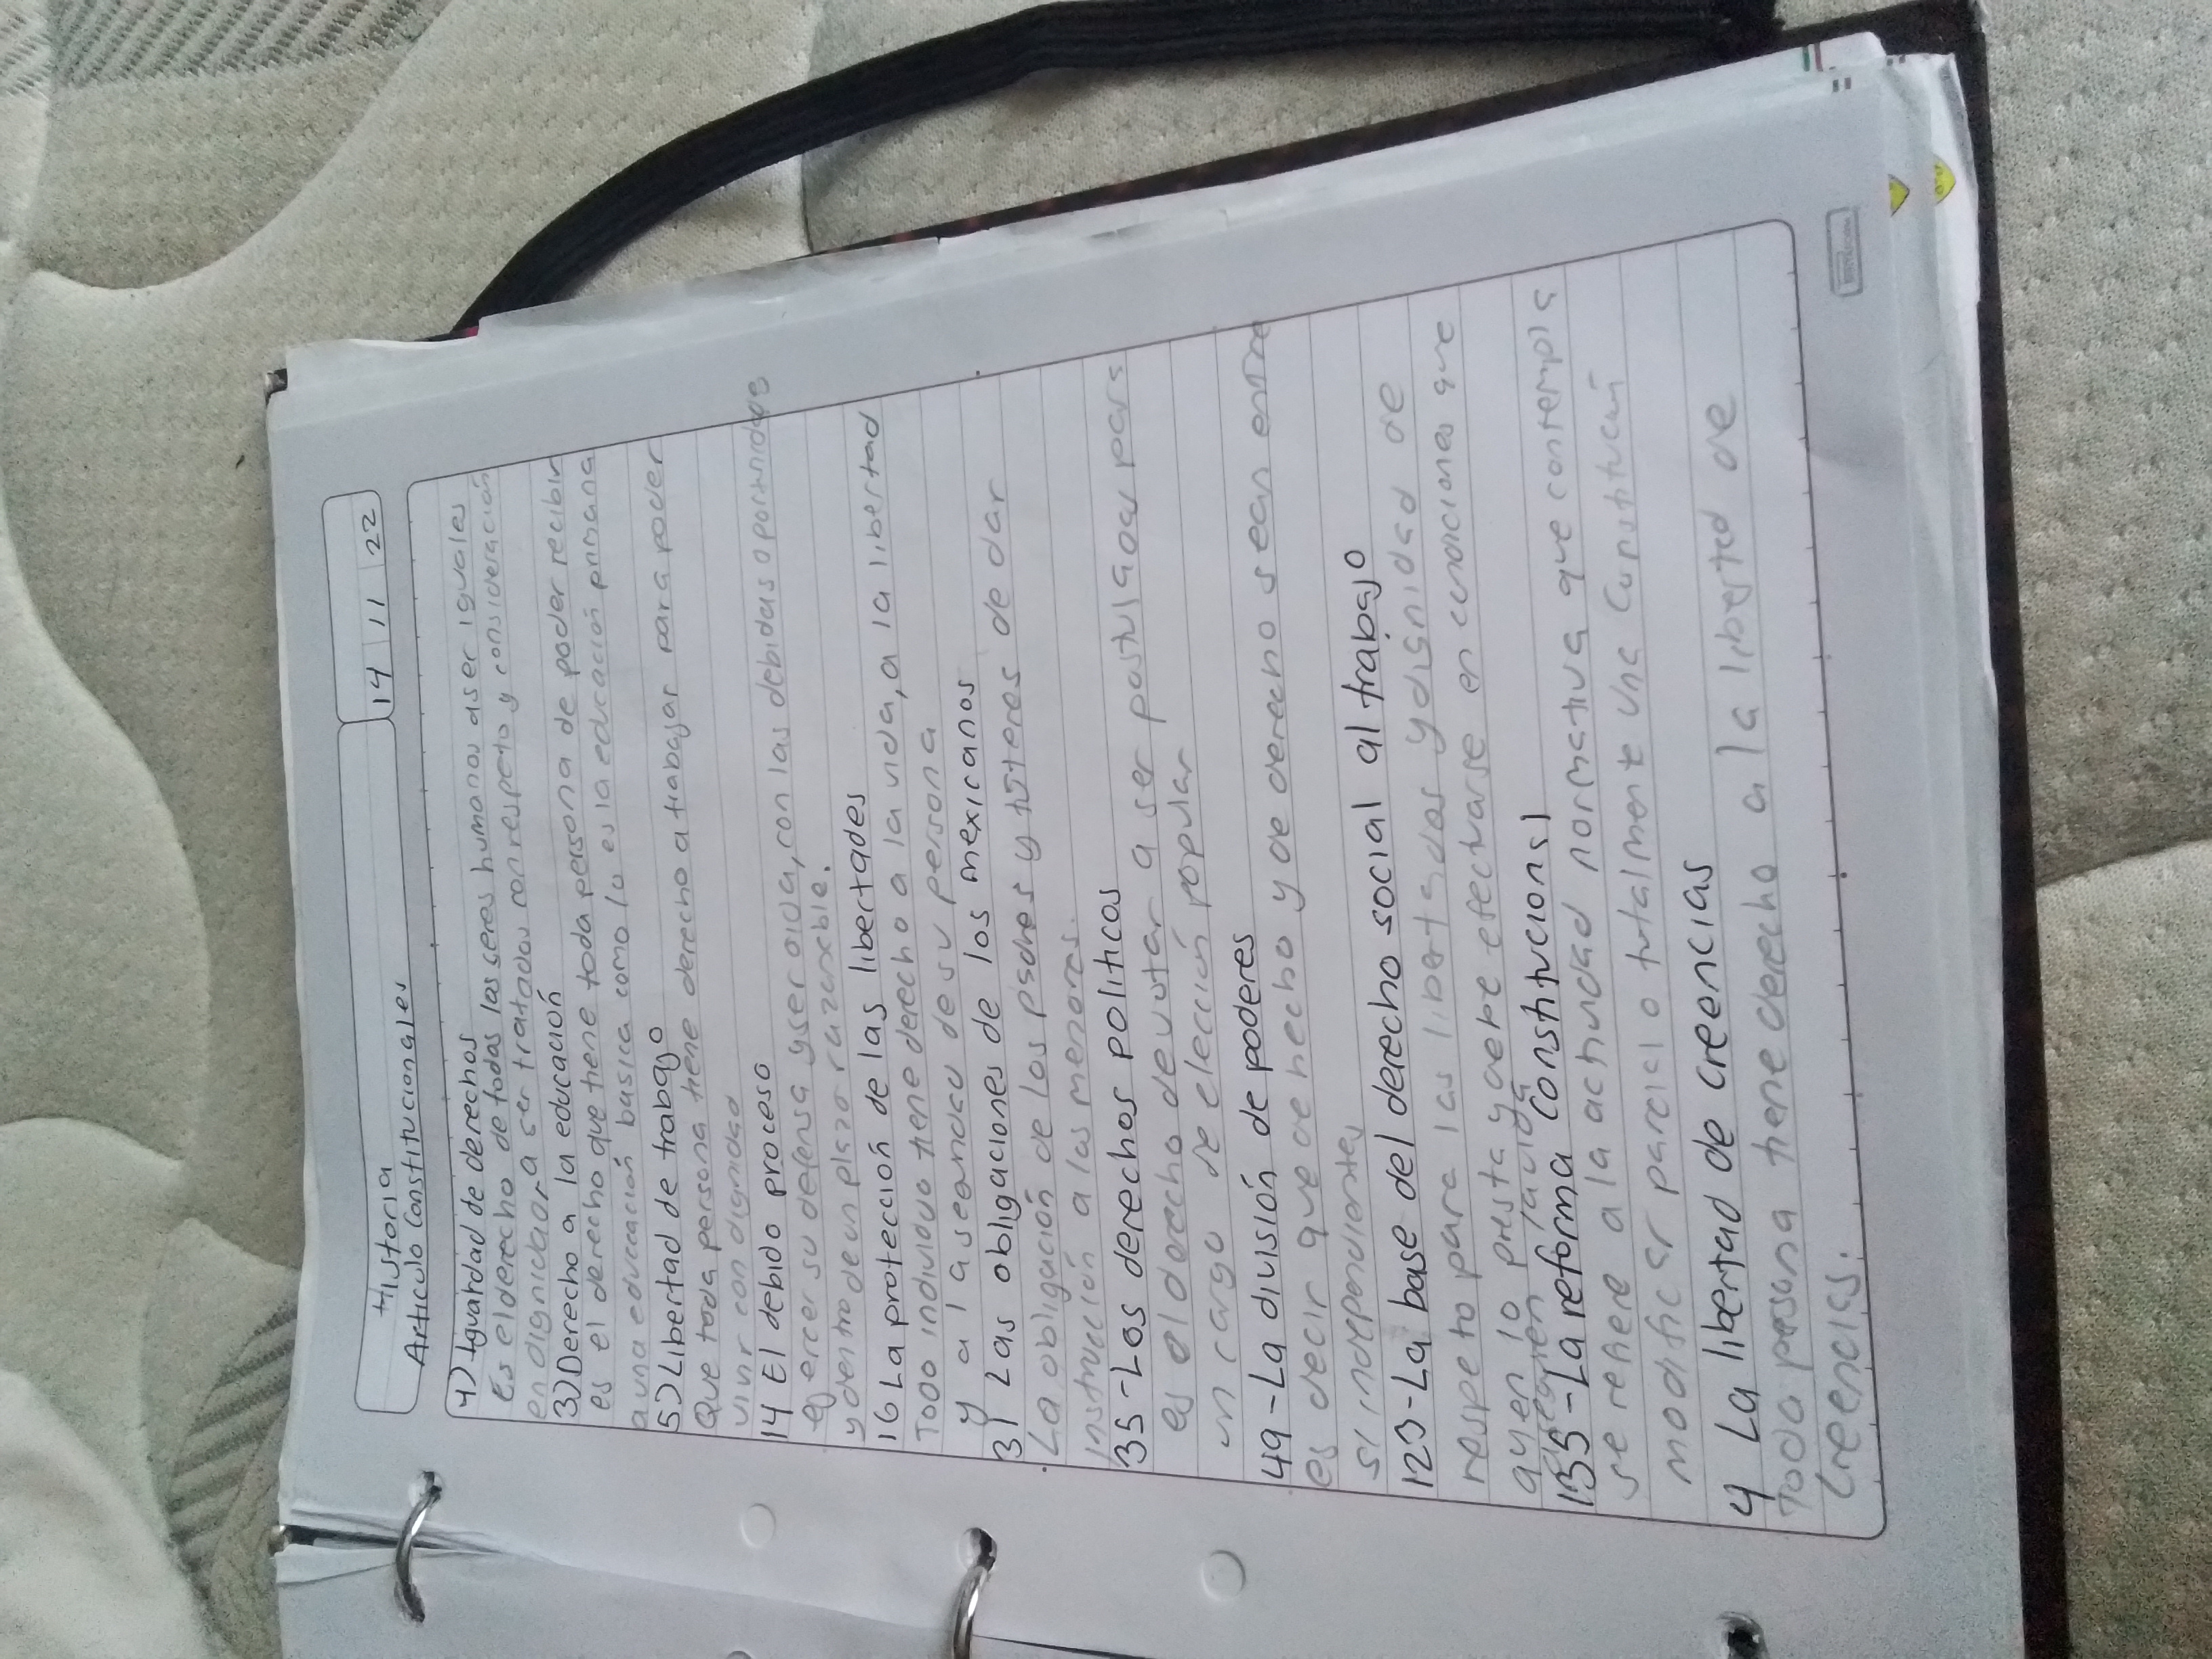 Historia
14 11 22
Articulo Constitucionales
4) Iguardad de derechos
Es el derecho de todas las seres humanos a ser iguales
en dignidad a ser tratados con respeto y consideración
3) Derecho a la educación
es el derecho que tiene toda persona de poder recibir
a una educación basica como lo es la educación primaria
5) Libertad de trabajo
Que toda persona tiene derecho a trabajar para poder
vivir con dignidad
14 El debido proceso
ejercer su defensa y ser oida, con las debidas oportunidades
y dentro de un plazo razonable.
16 La protección de las libertades
Todo individuo tiene derecho a la vida, a la libertad
y a la seguridad de su persona
31 Las obligaciones de los mexicanos
La obligación de los padres y tuteres de dar
instrucción a los menores.
35-Los derechos politicos
es el derecho de votar a ser postulado para
un cargo de elección popular
49-La división de poderes
es decir que de hecho y de derecho sean entre
si independientes
123-La base del derecho social al trabajo
respeto para las libertades y dignidad de
quien lo presta y debe efectuarse en condiciones que
aseguren la vida
135-La reforma constitucional
se refiere a la actividad normativa que contempla
modificar parcial o totalmente una Constitución
4 La libertad de creencias
Toda persona tiene derecho a la libertad de
creencias.